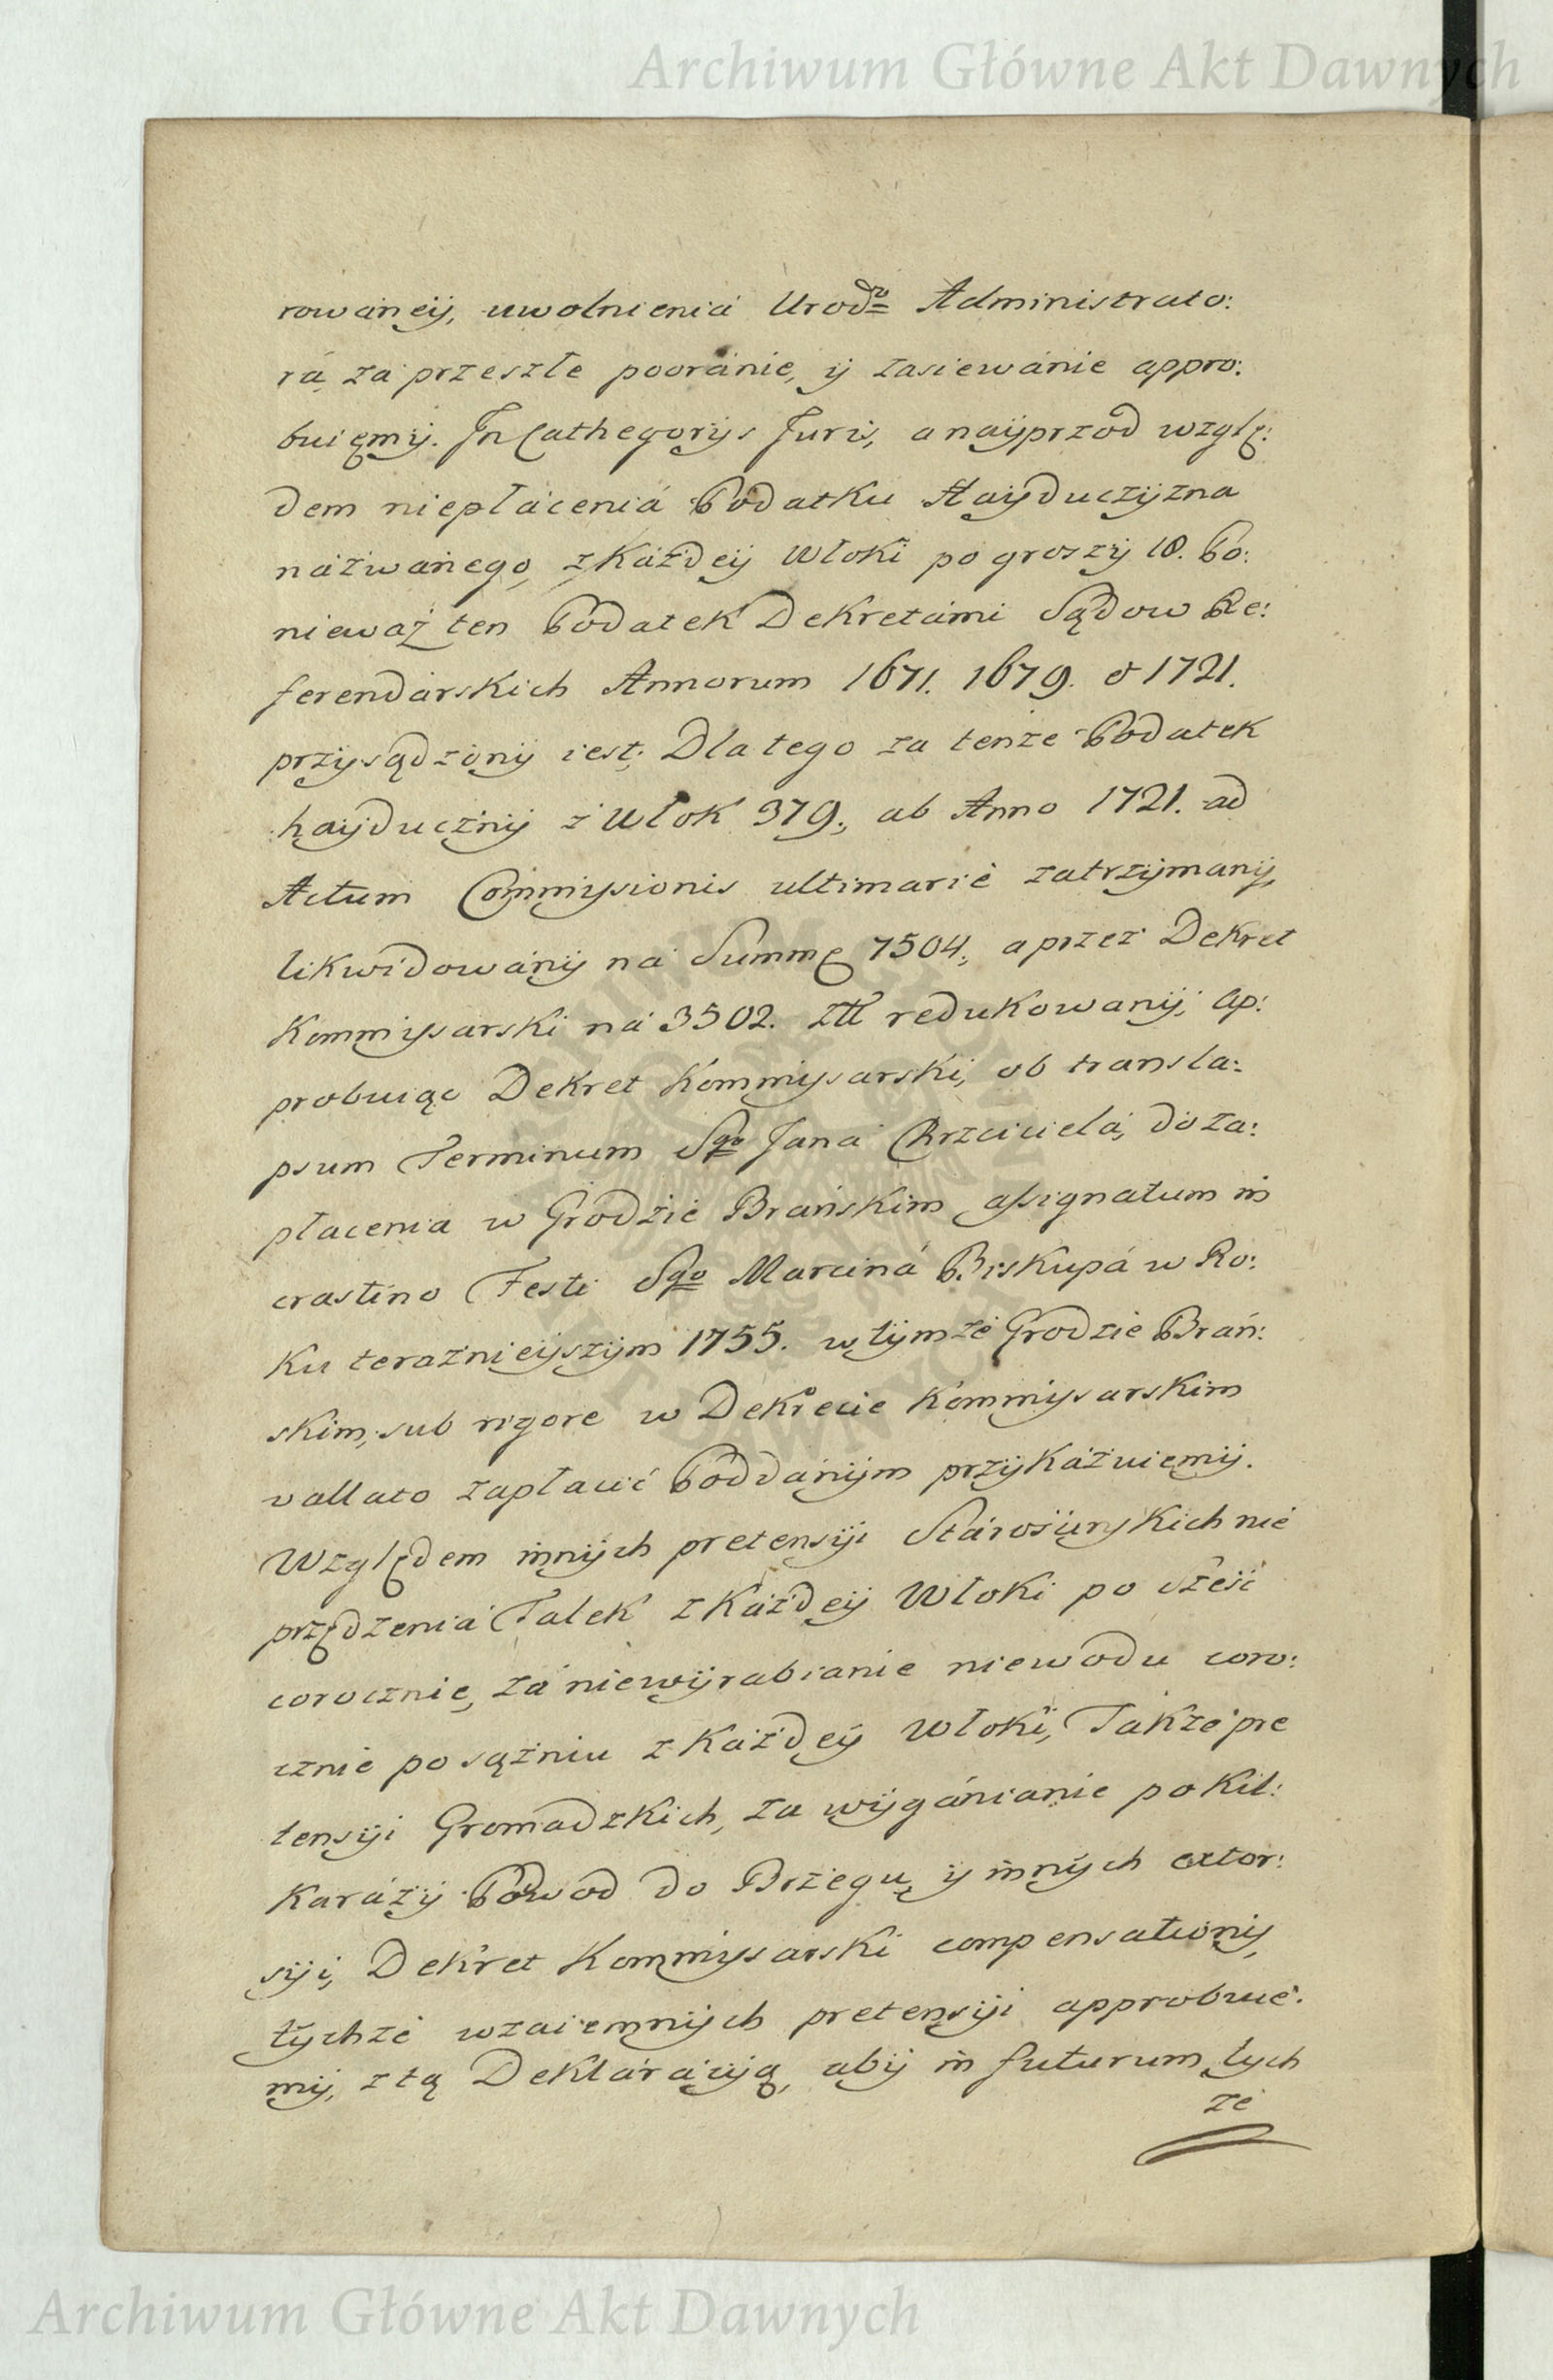 Archiwum Główne Akt Dawnych
rowáneÿ, uwolnieniá Urodzo Administrato:
rá, zá przeszłe pooránie, ÿ zasiewánie appro:
buięmÿ. In Cathegorÿs Juris, a naÿprzod wzglę:
dem niepłáceniá Podatku Haÿduczÿzna
názwánego, z Kázdeÿ Włoki po groszÿ 10. Po:
niewáż ten Podatek Dekretámi Sądow Re:
ferendarskich Annorum 1671. 1679. & 1721.
przÿsądzonÿ iest; Dla tego za tenże Podatek
haÿducznÿ z Włok 379., ab Anno 1721. ad
Actum Commissionis ultimarie zatrzÿmanÿ,
likwidowánÿ ná Summę 7504., a przez Dekret
Kommissarski ná 3502. złł redukowanÿ, Ap:
probuiąc Dekret Kommissarski, ob transla:
psum Terminum Sgo Janá Chrzcicielá, do za:
płacenia w Grodzie Bránskim assignatum in
crastino Festi Sgo Marciná Biskupá w Ro:
ku teraznieÿszÿm 1755. w tÿmże Grodzie Brań:
skim, sub rigore w Dekrecie Kommissarskim
vallato zapłacić Poddánÿm przÿkázuiemÿ.
Względem innÿch pretensÿi Stárościńskich nie
przędzenia Talek z Każdeÿ Włoki po sześć
corocznie, zá niewÿrabianie niewodu coro:
cznie po sążniu z Każdeÿ Włoki, Także pre
tensÿi Gromadzkich, za wÿgánianie po kil:
karázÿ Powod do Brzegu, ÿ innÿch extor:
sÿi, Dekret Kommissarski compensationis,
tÿchże wzaiemnÿch pretensÿi approbuie:
mÿ, z tą Deklarácÿą, abÿ in futurum tÿch
że
Archiwum Główne Akt Dawnych